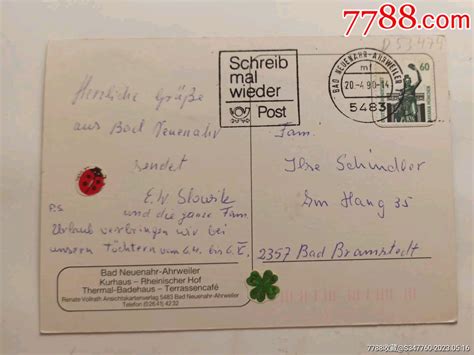 7788.com
D 53475
Schreib
mal
wieder
Post
BAD NEUENAHR-AHRWEILER
mf
20.-4.90-14
5483
60
Herzliche Grüße
aus Bad Neuenahr
sendet
E. W. Slowik
und die ganze Fam.
P.S.
Urlaub verbringen wir bei
unseren Töchtern vom 6.4. bis 6.5.
Fam.
Ilse Schindler
Am Hang 35
2357 Bad Bramstedt
Bad Neuenahr-Ahrweiler
Kurhaus – Rheinischer Hof
Thermal-Badehaus – Terrassencafé
Renate Vollrath Ansichtskartenverlag 5483 Bad Neuenahr-Ahrweiler
Telefon (02641) 4232
7788收藏@S347760-2023.05.16